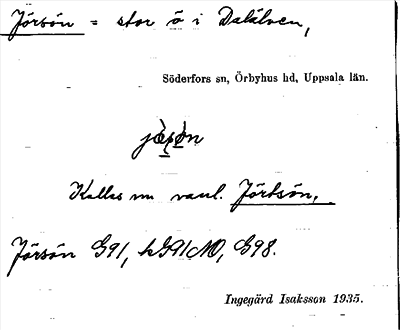 Jörsön = stor ö i Dalälven,
Söderfors sn, Örbyhus hd, Uppsala län.
Kallas nu vanl. Jörtsön.
Jörsön G91, hG91NO, G98.
Ingegärd Isaksson 1935.